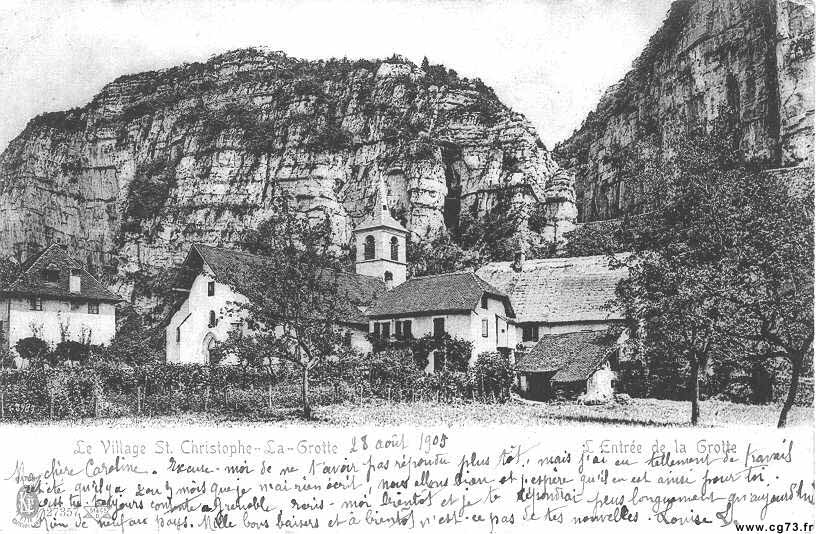 Le Village St. Christophe-La-Grotte 28 août 1905 L'Entrée de la Grotte
Ma chère Caroline. Excuse-moi de ne t'avoir pas répondu plus tôt, mais j'ai eu tellement de travail
cet été qu'il y a 2 ou 3 mois que je n'ai rien écrit nous allons bien et j'espère qu'il en est ainsi pour toi.
toujours contente à Grenoble, écris-moi bientôt et je te répondrai plus longuement qu'aujourd'hui
de neuf au pays. Mille bons baisers et à bientôt n'est-ce pas de tes nouvelles. Louise
27357
www.cg73.fr